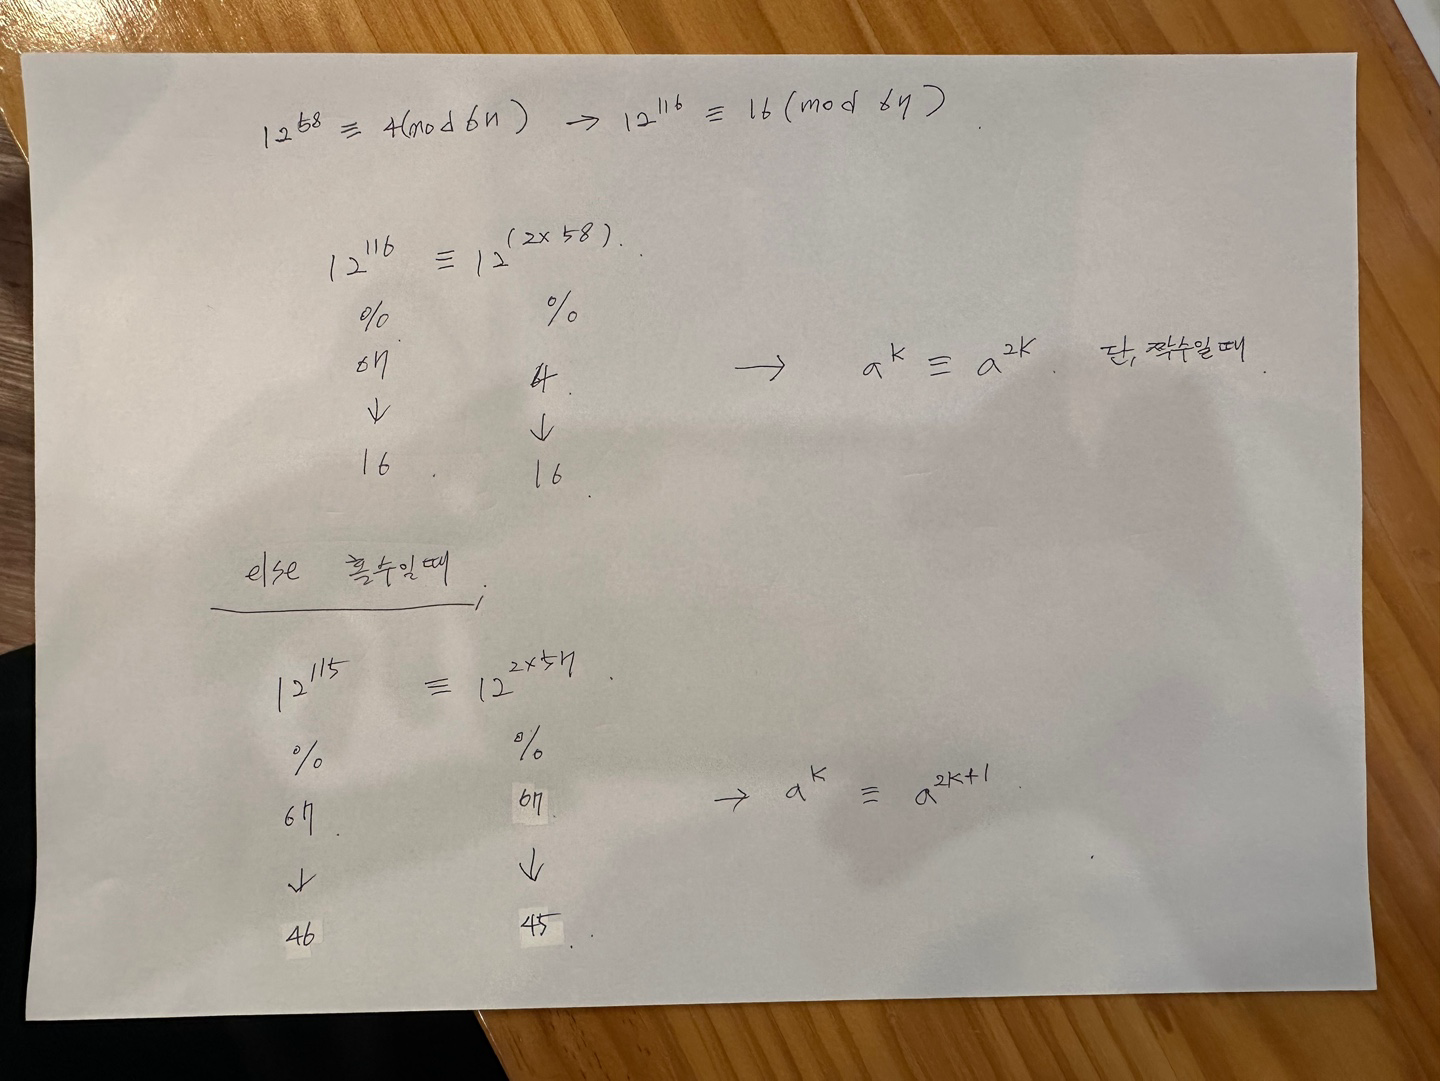 12^58 ≡ 4(mod 67) → 12^116 ≡ 16 (mod 67)
12^116 ≡ 12^(2×58).
% %
67
↓ ↓
16 16
→ a^k ≡ a^2k 단, 짝수일때
else 홀수일때
12^115 ≡ 12^2×57
% %
67 67
↓ ↓
46 45
→ a^k ≡ a^2k+1